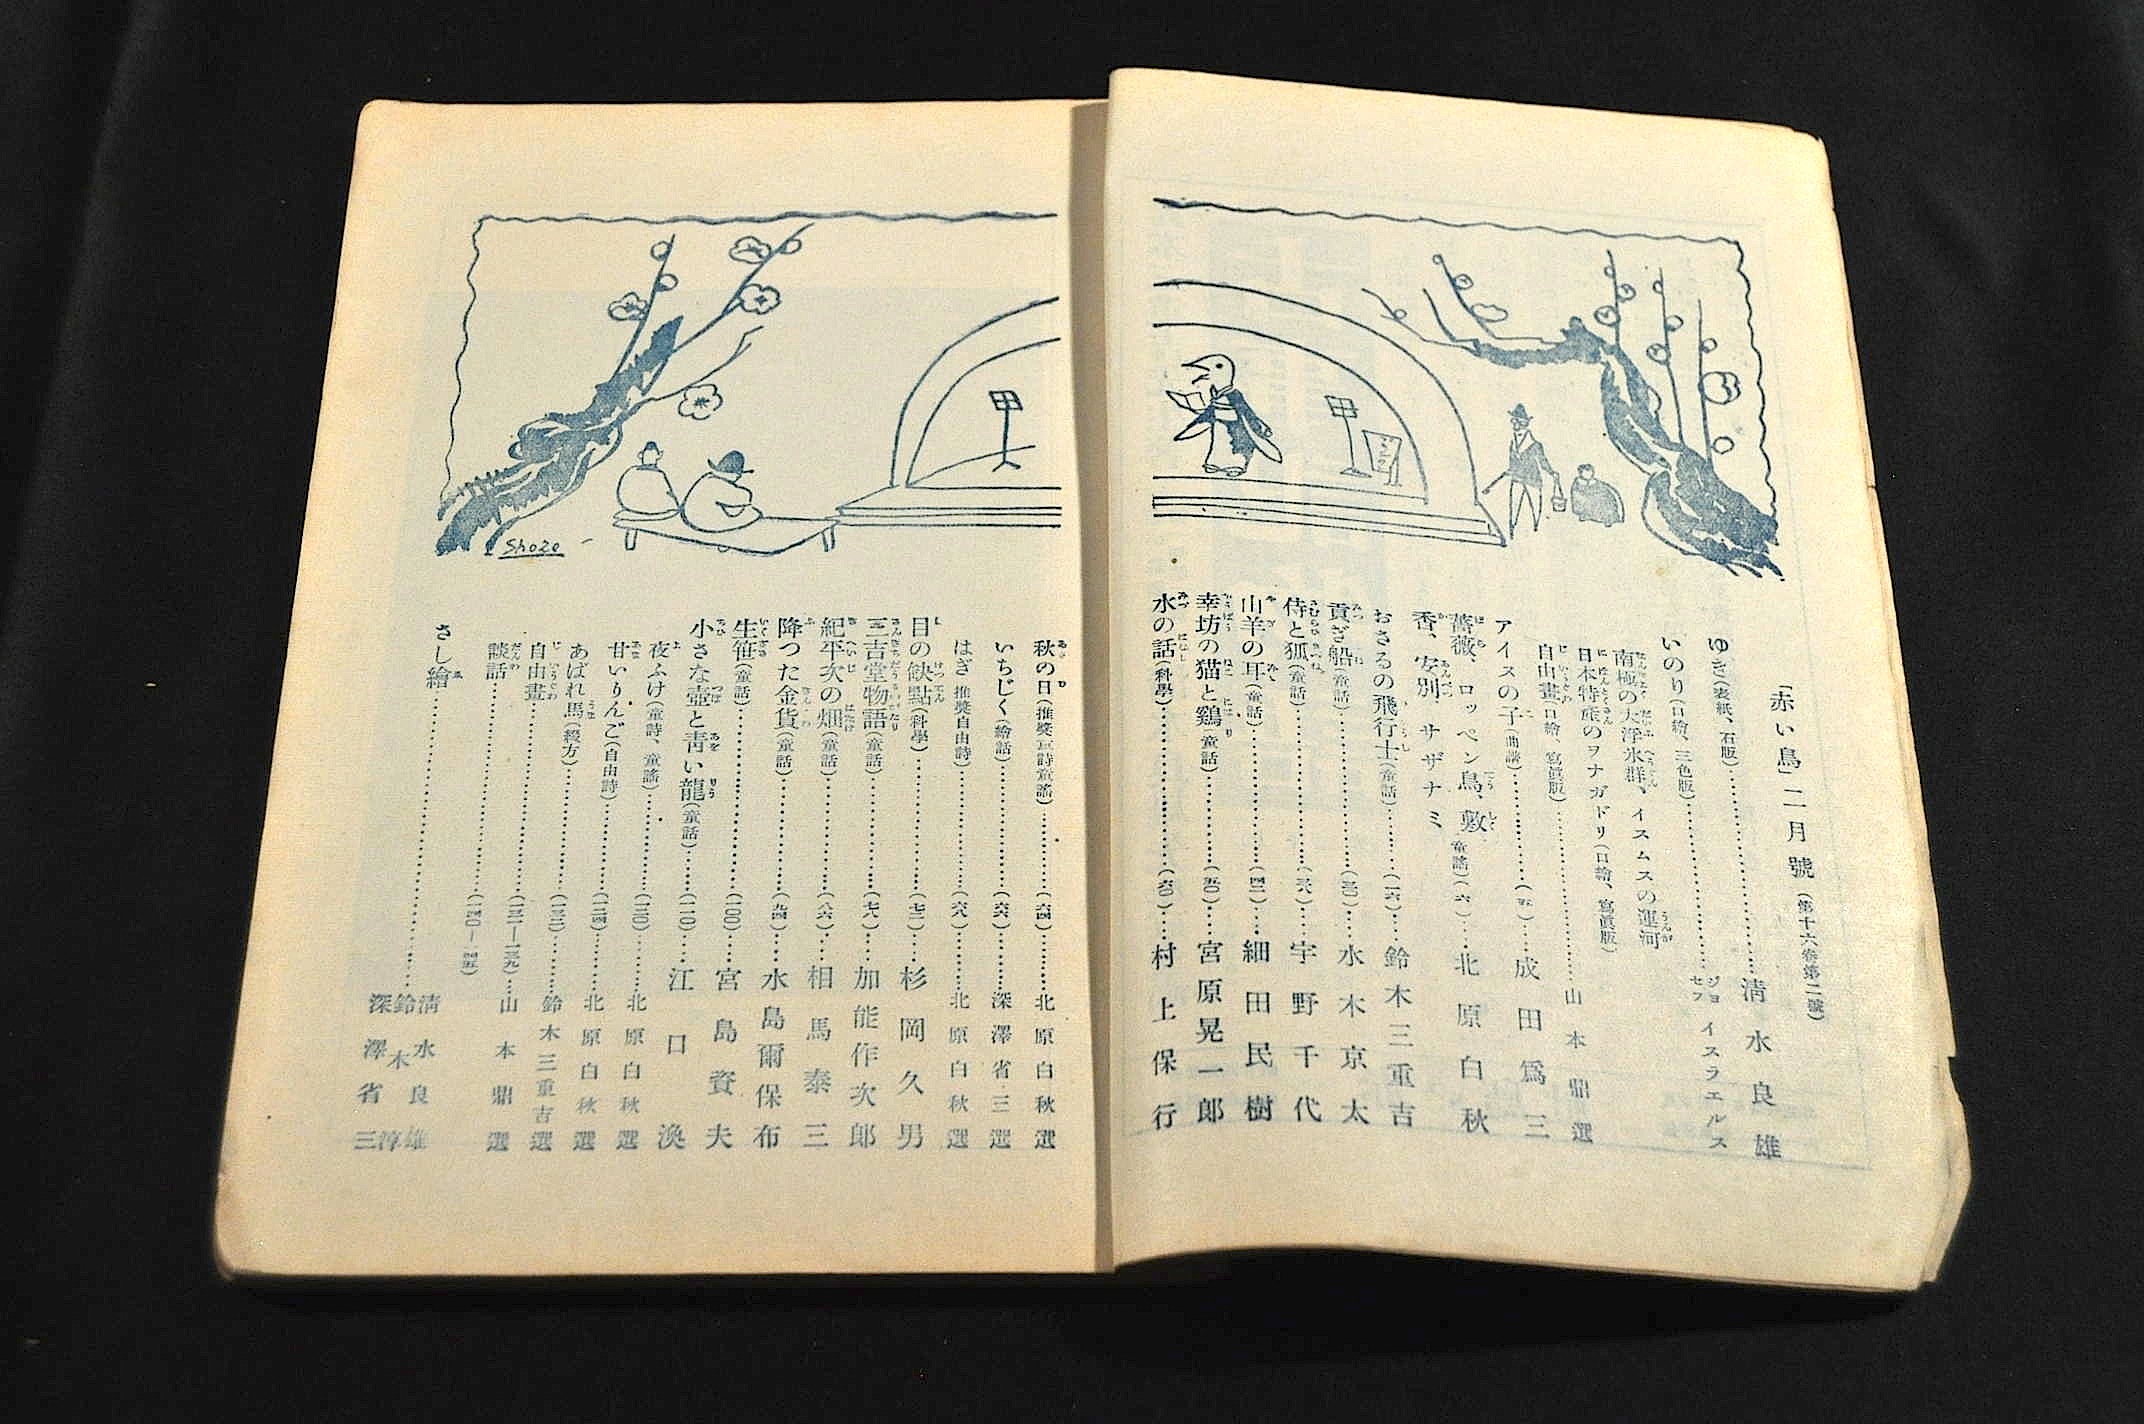 「赤い鳥」二月號(第十六卷第二號)
ゆき(表紙、石版)……清水良雄
いのり(口繪、三色版)……ジョセフ イスラエルス
南極の大浮氷群、イスムスの運河
日本特産のヲナガドリ(口繪、寫眞版)
自由畫(口繪、寫眞版)……山本鼎選
アイヌの子(曲譜)……成田爲三
薔薇、ロッペン鳥、數、
香、安別、サザナミ(童謠)……北原白秋
おさるの飛行士(童話)……(一六)……鈴木三重吉
貢ぎ船(童話)……(三〇)……水木京太
侍と狐(童話)……(三八)……宇野千代
山羊の耳(童話)……(四二)……細田民樹
幸坊の猫と鷄(童話)……(五〇)……宮原晃一郎
水の話(科學)……(六〇)……村上保行
秋の日(推奬童詩童謠)……(六四)……北原白秋選
いちじく(繪話)……(六六)……深澤省三選
はぎ 推奬自由詩)……(六八)……北原白秋選
目の缺點(科學)……(七二)……杉岡久男
三吉堂物語(童話)……(七八)……加能作次郎
紀平次の畑(童話)……(八六)……相馬泰三
降つた金貨(童話)……(九四)……水島爾保布
生笹(童話)……(一〇〇)……宮島資夫
小さな壺と靑い龍(童話)……(一一〇)……江口渙
夜ふけ(童詩、童謠)……(一二〇)……北原白秋選
甘いりんご(自由詩)……(一二四)……北原白秋選
あばれ馬(綴方)……(一三二)……鈴木三重吉選
自由畫……(一三一—一三九)……山本鼎選
談話……(一四〇—一四五)
さし繪……清水良雄
鈴木淳
深澤省三
Shozo